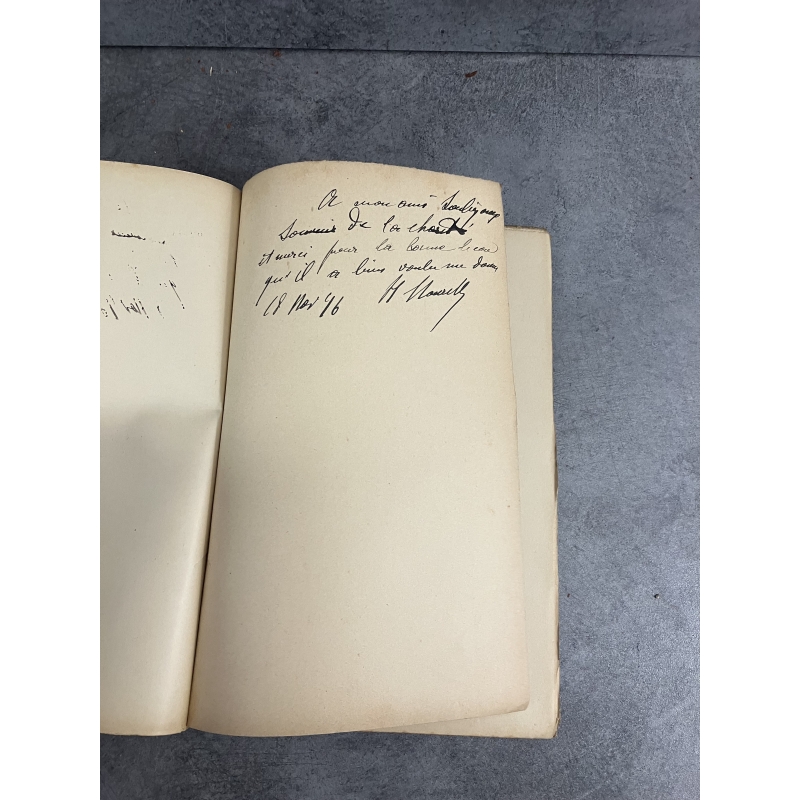 A mon ami
Souvenir de la charité
et merci pour la bonne lecon
qu'il a bien voulu me donner
18 Nov 96 H